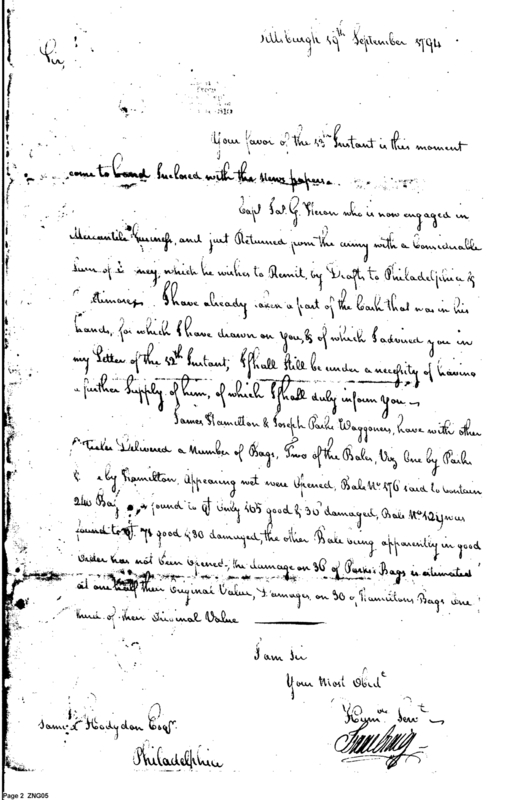 Pittsburgh 19th September 1794
Sir,
Your favor of the 12th Instant is this moment
come to hand Inclosed with the News papers.
Capt Jas G. Heron who is now engaged in
Mercantile business, and just Returned from the army with a Considerable
Sum of money, which he wishes to Remit, by Drafts to Philadelphia &
Baltimore. I have already taken a part of the Cash that was in his
hands, for which I have drawn on you, & of which I advised you in
my Letter of the 12th Instant, I shall still be under a necessity of having
a further Supply of him, of which I shall duly inform you
James Hamilton & Joseph Parks Waggoners, have with other
Articles Delivered a Number of Bags, Two of the Bales, Viz One by Parks
& one by Hamilton, appearing wet were opened, Bale No 176 said to contain
240 Bags, found to Qt only 205 good & 36 damaged, Bale No 124 was
found to Qt 78 good & 30 damaged, the other Bale being apparently in good
order has not been opened, the damage on 36 of Parks's Bags is estimated
at one half their Original Value, Damages on 30 of Hamiltons Bags one
third of their Original Value
I am Sir
Your Most Obedt
Humble Servt
Isaac Craig
Saml Hodgdon Esqr
Philadelphia
Page 2 ZNG05